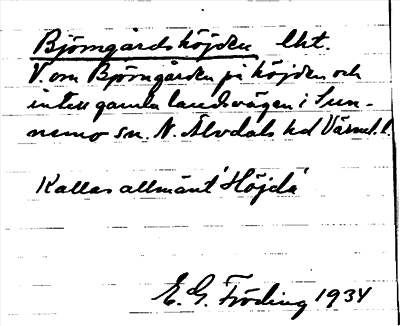 Björngårdshöjden lht.
V. om Björngården på höjden och
intill gamla landsvägen i Sun-
nemo sn. N. Älvdals hd Värml. l.
Kallas allmänt 'Höjda'
E. G. Fröding 1934